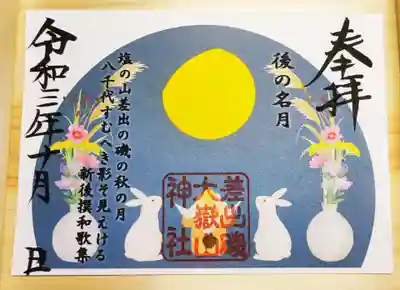 奉拝
後の名月
塩の山差出の磯の秋の月
八千代すむべき影ぞ見えける
新後撰和歌集
差出磯
大嶽山
神社
令和三年十月 日